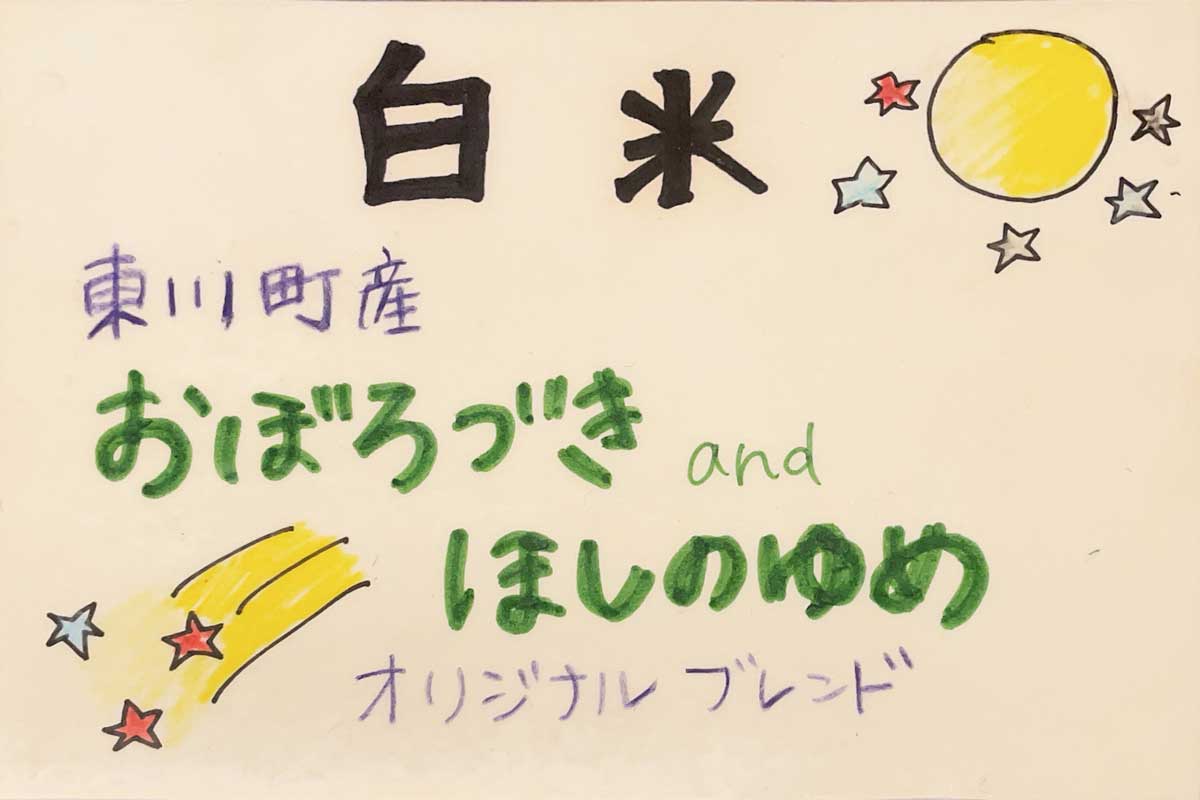 白米
東川町産
おぼろづき and
ほしのゆめ
オリジナル ブレンド